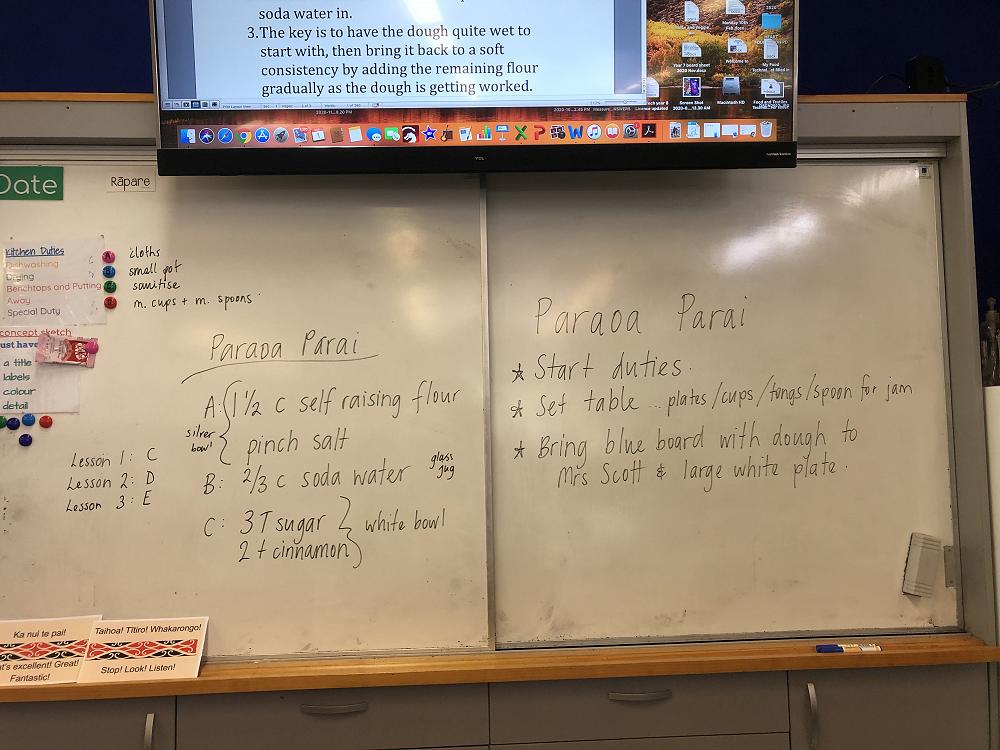 soda water in.
3.The key is to have the dough quite wet to
start with, then bring it back to a soft
consistency by adding the remaining flour
gradually as the dough is getting worked.
Year 7 board sheet
2020 Nov.docx
Welcome to
My Food
Screen Shot
Macintosh HD
Food and Textiles
TCL
harman/kardon
Date
Rāpare
Kitchen Duties
Dishwashing
Drying
Benchtops and Putting
Away
Special Duty
cloths
small pot
sanitise
m. cups + m. spoons
concept sketch
ust have
a title
labels
colour
detail
Lesson 1: C
Lesson 2: D
Lesson 3: E
Paraoa Parai
A: 1 1/2 c self raising flour
silver
bowl
pinch salt
B: 2/3 c soda water
glass
jug
C: 3 T sugar
2 t cinnamon
white bowl
Paraoa Parai
* Start duties.
* Set table ... plates/cups/tongs/spoon for jam
* Bring blue board with dough to
Mrs Scott & large white plate.
Ka nui te pai!
at's excellent! Great!
Fantastic!
Taihoa! Titiro! Whakarongo!
Stop! Look! Listen!